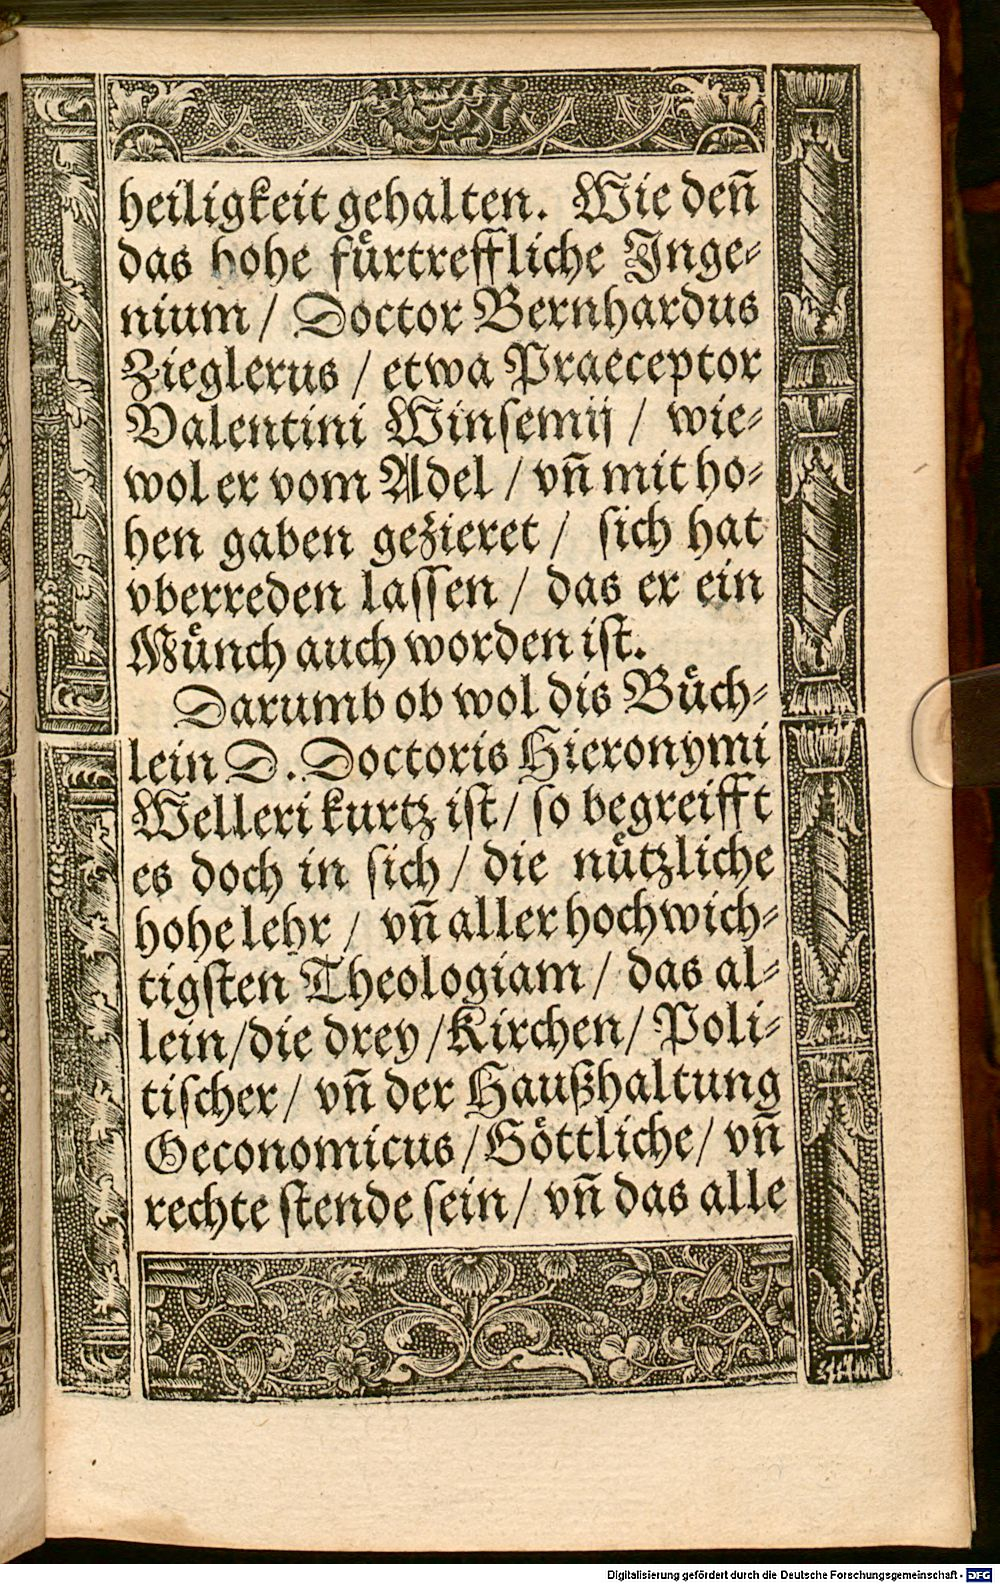 heiligkeit gehalten. Wie deñ
das hohe fuͤrtreffliche Inge⸗
nium / Doctor Bernhardus
Zieglerus / etwa Praeceptor
Valentini Winſemij / wie⸗
wol er vom Adel / vñ mit ho⸗
hen gaben gezieret / ſich hat
vberreden laſſen / das er ein
Muͤnch auch worden iſt.
Darumb ob wol dis Buͤch⸗
lein D. Doctoris Hieronymi
Welleri kurtz iſt / ſo begreifft
es doch in ſich / die nuͤtzliche
hohe lehr / vñ aller hochwich⸗
tigſten Theologiam / das al⸗
lein / die drey / Kirchen / Poli⸗
tiſcher / vñ der Haußhaltung
Oeconomicus / Goͤttliche / vñ
rechte ſtende ſein / vñ das alle
Digitalisierung gefördert durch die Deutsche Forschungsgemeinschaft - DFG